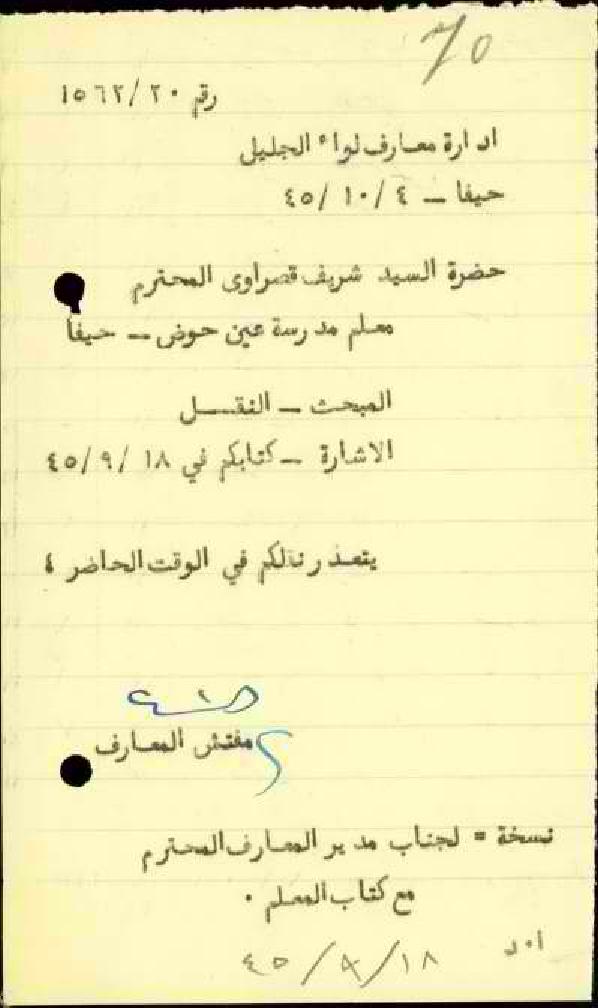 70
رقم ١٥٦٢/٢٠
ادارة معارف لواء الجليل
حيفا ـ ٤ /١٠ /٤٥
حضرة السيد شريف قصراوى المحترم
معلم مدرسة عين حوض ـ حيفا
المبحث ـ النقـــل
الاشارة ـ كتابكم في ١٨ /٩/ ٤٥
يتعذر نقلكم في الوقت الحاضر ،
مفتش المعارف
نسخة = لجناب مدير المعارف المحترم
مع كتاب المعلم ٠
٤٥ /٩/١٨